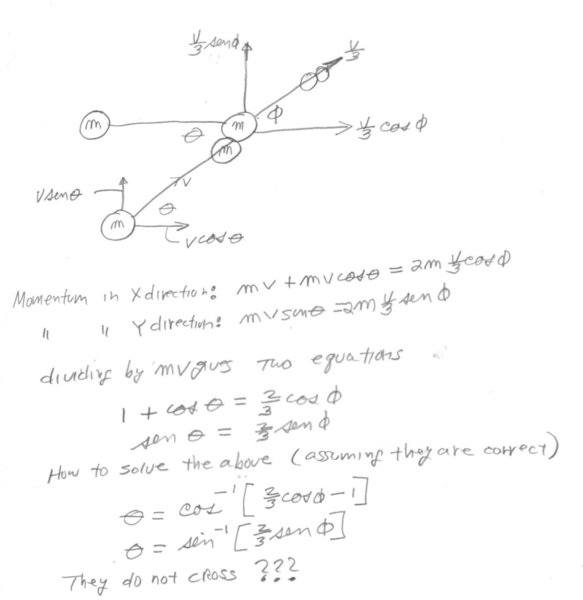 V/3 senϕ
V/3
m
m
ϕ
θ
V/3 cosϕ
m
Vsenθ
V
θ
m
Vcosθ
Momentum in X direction: mV + mVcosθ = 2m V/3 cosϕ
" " Y direction: mVsenθ = 2m V/3 senϕ
dividing by mV gives two equations
1 + cosθ = 2/3 cosϕ
senθ = 2/3 senϕ
How to solve the above (assuming they are correct)
θ = cos⁻¹[2/3 cosϕ - 1]
θ = sin⁻¹[2/3 senϕ]
They do not cross ???